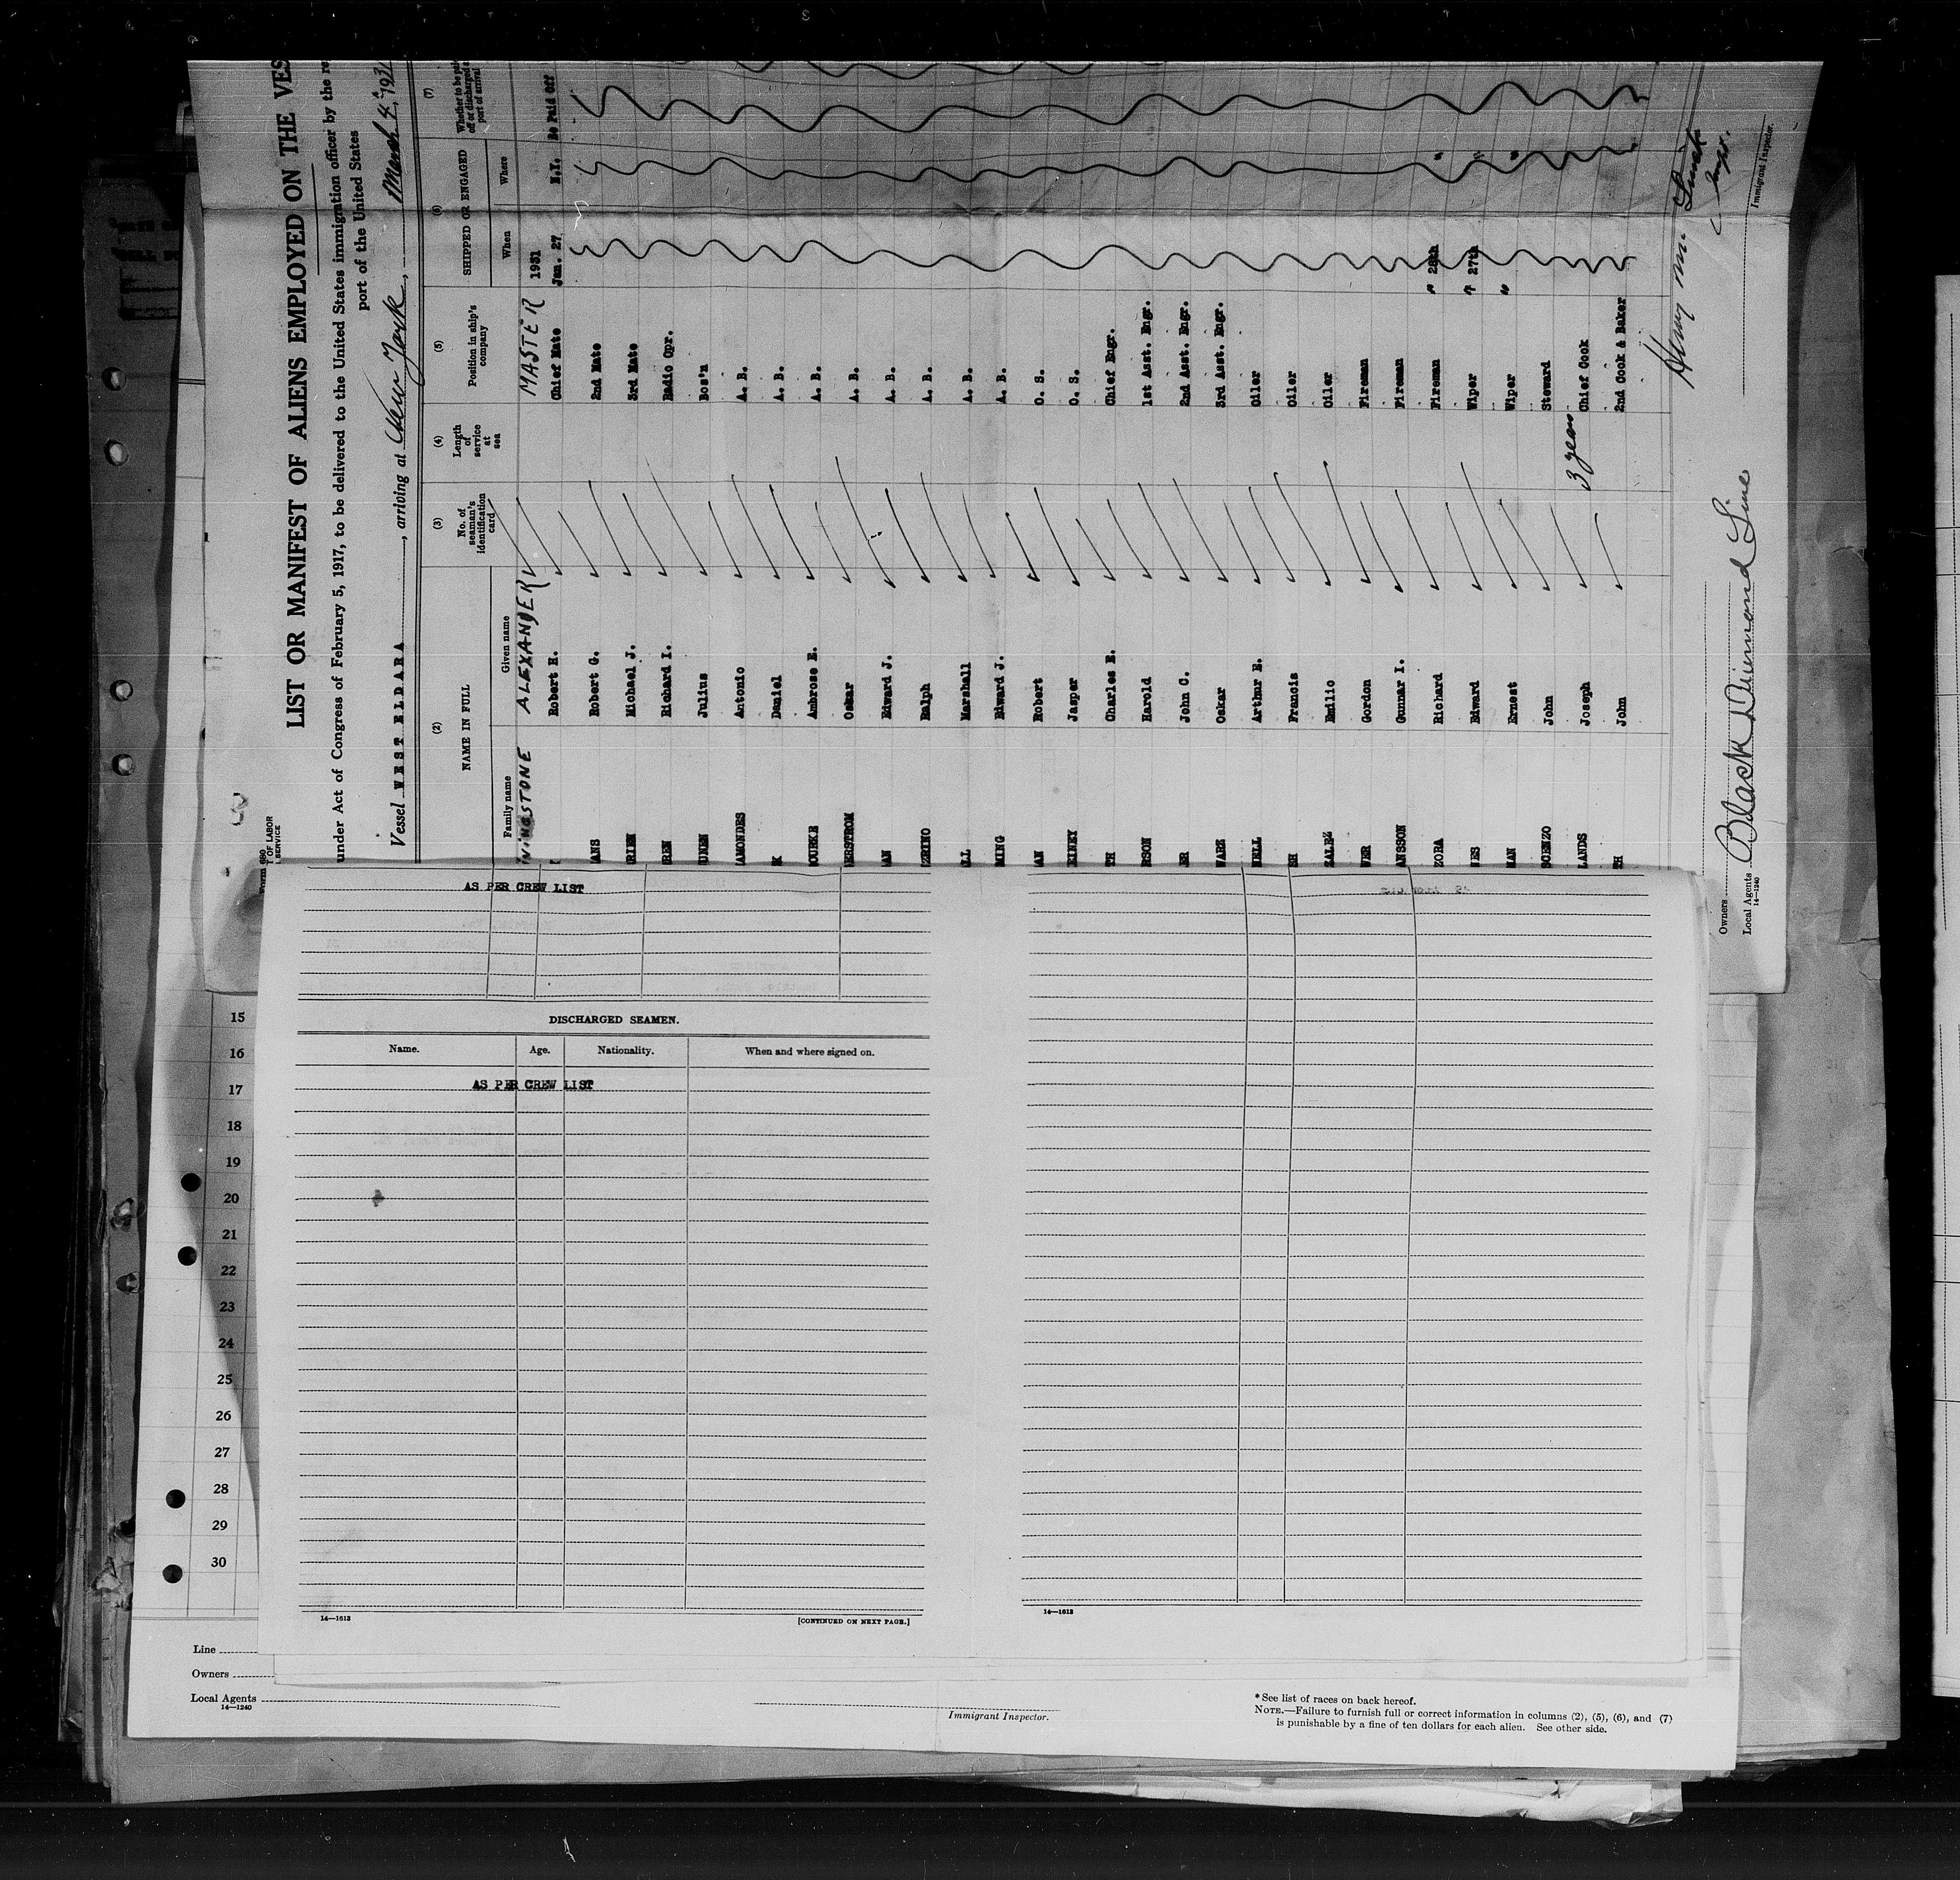 LIST OR MANIFEST OF ALIENS EMPLOYED ON THE VES
under Act of Congress of February 5, 1917, to be delivered to the United States immigration officer by the re
port of the United States
Vessel WEST ELDARA, arriving at New York, March 4th, 1931
(2) (3) (4) (5) (6) (7)
NAME IN FULL
Family name Given name
No. of seaman's identification card
Length of service at sea
Position in ship's company
SHIPPED OR ENGAGED
When Where
Whether to be pai
off or discharged a
port of arrival
1931
INGSTONE ALEXANDER MASTER
Robert H. Chief Mate Jan. 27 N.Y. Be Paid Off
ANS Robert G. 2nd Mate
RIEN Michael J. 3rd Mate
REN Richard I. Radio Opr.
UNEN Julius Bos'n
AMONDES Antonio A. B.
K Daniel A. B.
OURKE Ambrose E. A. B.
ERSTROM Oskar A. B.
AN Edward J. A. B.
EZRINO Ralph A. B.
LL Marshall A. B.
MING Edward J. A. B.
AN Robert O. S.
EINEY Jasper O. S.
TH Charles E. Chief Engr.
RSON Harold 1st Asst. Engr.
ER John C. 2nd Asst. Engr.
WARE Oskar 3rd Asst. Engr.
NELL Arthur E. Oiler
SH Francis Oiler
ZALEZ Emilio Oiler
VER Gordon Fireman
ANSSON Gunnar I. Fireman
ZORA Richard Fireman " 28th "
NES Edward Wiper " 27th "
MAN Ernest Wiper " "
SCENZO John Steward
LANDS Joseph 3 years Chief Cook
TH John 2nd Cook & Baker
Immigrant Inspector.
Owners
Local Agents Black Diamond Line
14—1240
T OF LABOR
SERVICE
AS PER CREW LIST
DISCHARGED SEAMEN.
Name. Age. Nationality. When and where signed on.
AS PER CREW LIST
14—1613
[CONTINUED ON NEXT PAGE.]
14—1613
15
16
17
18
19
20
21
22
23
24
25
26
27
28
29
30
Line
Owners
Local Agents
14—1240
Immigrant Inspector.
* See list of races on back hereof.
NOTE.—Failure to furnish full or correct information in columns (2), (5), (6), and (7)
is punishable by a fine of ten dollars for each alien. See other side.